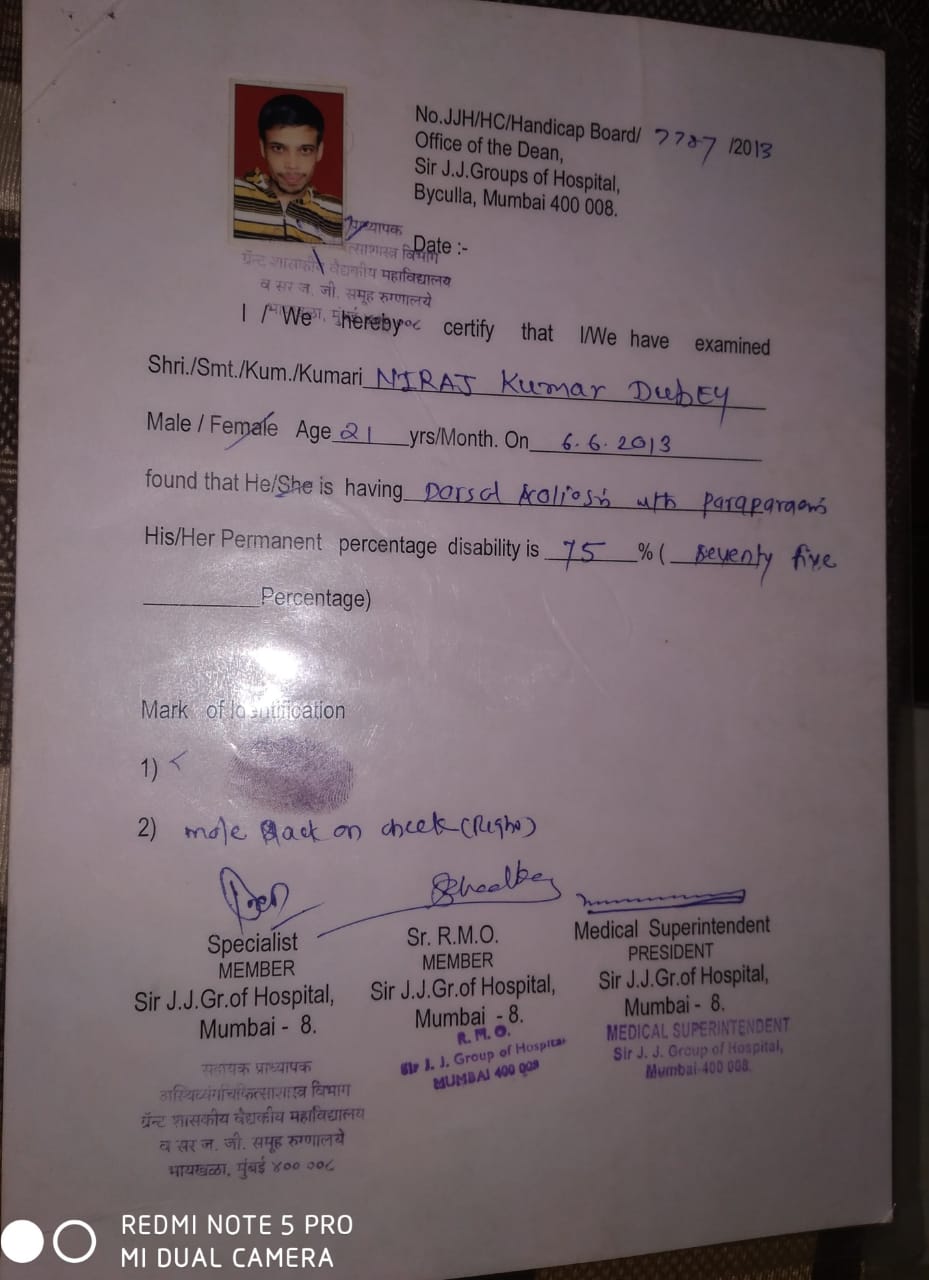 No.JJH/HC/Handicap Board/ 7787 /2013
Office of the Dean,
Sir J.J.Groups of Hospital,
Byculla, Mumbai 400 008.
Date :-
ग्रॅन्ट शासकीय वैद्यकीय महाविद्यालय
व सर ज. जी. समूह रुग्णालये
भायखळा, मुंबई ४०० ००८
I / We hereby certify that I/We have examined
Shri./Smt./Kum./Kumari NIRAJ Kumar DubEY
Male / Female Age 21 yrs/Month. On 6.6.2013
found that He/She is having Dorsal scoliosis with paraparesis
His/Her Permanent percentage disability is 75 % ( seventy five
Percentage)
Mark of Identification
1)
2) mole Back on cheek (Right)
Specialist
MEMBER
Sir J.J.Gr.of Hospital,
Mumbai - 8.
Sr. R.M.O.
MEMBER
Sir J.J.Gr.of Hospital,
Mumbai - 8.
R. M. O.
Sir J. J. Group of Hospital
MUMBAI 400 008
Medical Superintendent
PRESIDENT
Sir J.J.Gr.of Hospital,
Mumbai - 8.
MEDICAL SUPERINTENDENT
Sir J. J. Group of Hospital,
Mumbai-400 008.
सहायक प्राध्यापक
अस्थिव्यंगचिकित्साशास्त्र विभाग
ग्रॅन्ट शासकीय वैद्यकीय महाविद्यालय
व सर ज. जी. समूह रुग्णालये
भायखळा, मुंबई ४०० ००८
REDMI NOTE 5 PRO
MI DUAL CAMERA